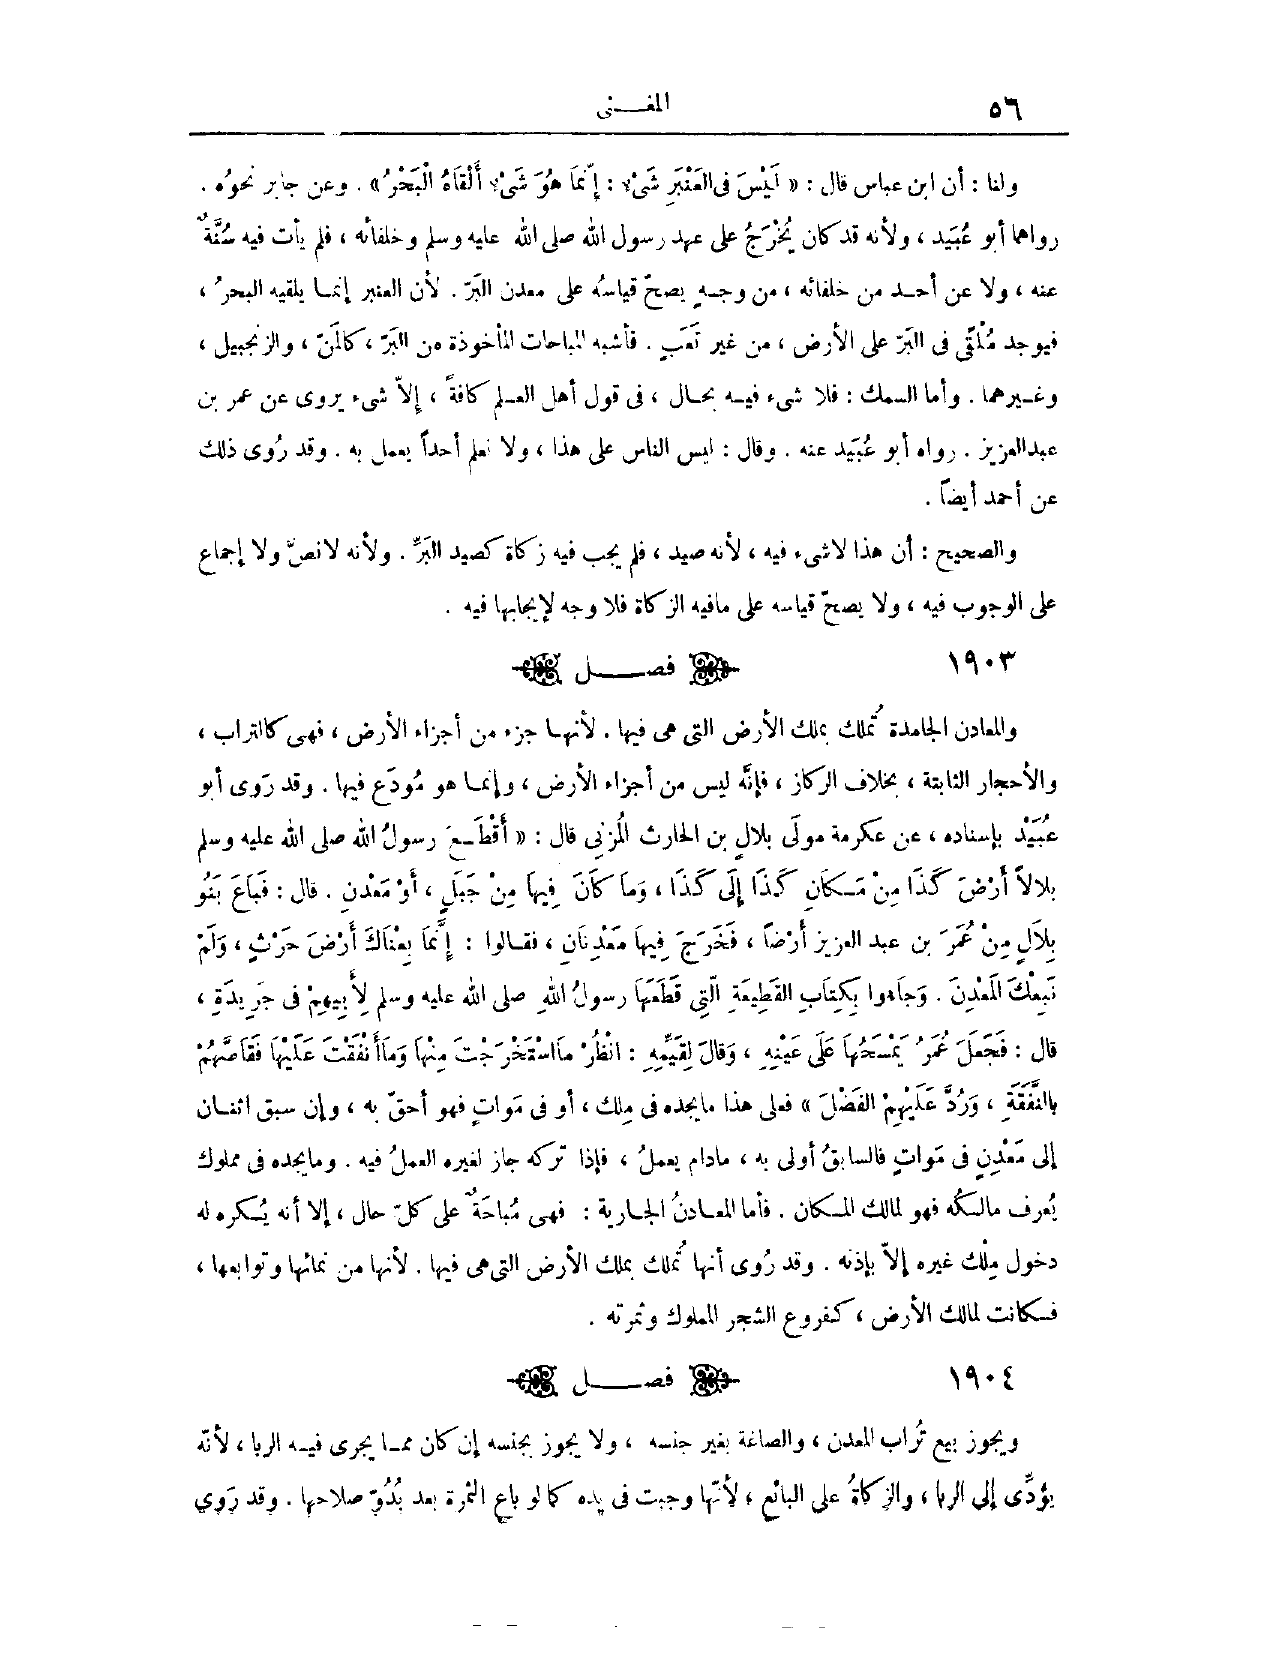 ٥٦
المغـــنى
ولنا : أن ابن عباس قال : « لَيْسَ فى العَنْبَرِ شَىْءٌ : إنّمَا هُوَ شَىْءٌ أَلْقَاهُ الْبَحْرُ» . وعن جابر نحوُه .
رواهما أبو عُبَيد ، ولأنه قد كان يُخْرَجُ على عهد رسول الله صلى الله عليه وسلم وخلفائه ، فلم يأت فيه سُنَّةٌ
عنه ، ولا عن أحـد من خلفائه ، من وجـهٍ يصحّ قياسُه على معدن البَرّ . لأن العنبر إنمـا يلقيه البحرُ ،
فيوجد مُلْقًى فى البَرّ على الأرض ، من غير تَعَبٍ . فأشبه المباحات المأخوذة من البَرّ ، كالمَنّ ، والزنجبيل ،
وغـيرهما . وأما السمك : فلا شىء فيـه بحـال ، فى قول أهل العـلم كافةً ، إلاّ شىء يروى عن عمر بن
عبدالعزيز . رواه أبو عُبَيد عنه . وقال : ليس الناس على هذا ، ولا نعلم أحداً يعمل به . وقد رُوى ذلك
عن أحمد أيضاً .
والصحيح : أن هذا لاشىء فيه ، لأنه صيد ، فلم يجب فيه زكاة كصيد البَرِّ . ولأنه لا نصّ ولا إجماع
على الوجوب فيه ، ولا يصحّ قياسه على مافيه الزكاة فلا وجه لإيجابها فيه .
١٩٠٣
فصـــل
والمعادن الجامدة تُملك بملك الأرض التى هى فيها . لأنهـا جزء من أجزاء الأرض ، فهى كالتراب ،
والأحجار الثابتة ، بخلاف الركاز ، فإنَّه ليس من أجزاء الأرض ، وإنمـا هو مُودَع فيها . وقد رَوى أبو
عُبَيْد بإسناده ، عن عكرمة مولَى بلالِ بن الحارث المُزنى قال : « أَقْطَـعَ رسولُ الله صلى الله عليه وسلم
بلالاً أَرْضَ كَذَا مِنْ مَـكَانِ كَذَا إِلَى كَذَا ، وَما كَانَ فِيهاَ مِنْ جَبَلٍ ، أَوْ مَعْدنِ . قال : فَبَاعَ بَنُو
بِلاَلٍ مِنْ عُمَرَ بن عبد العزيز أَرْضاً ، فَخَرَجَ فِيها مَعْدنَان ، فقـالوا : إِنَّمَا بِعْناكَ أَرْضَ حَرْثٍ ، وَلَمْ
نَبِعْكَ المَعْدِنَ . وَجَاءوا بِكِتَابِ القَطِيعَةِ الَّتِى قَطَعَهَا رسولُ اللهِ صلى الله عليه وسلم لِأَبِيهِمْ فى جَرِيدَةٍ ،
قال : فَجَعَلَ عُمَرُ يَمْسَحُهَا عَلَى عَيْنِهِ ، وَقَالَ لِقَيِّمِهِ : انْظُرْ مَااسْتَخْرَجْتَ مِنْهَا وَمَاأَنْفَقْتَ عَلَيْهَا فَقَاصَّهُمْ
بالنَّفَقَةِ ، وَرُدَّ عَلَيْهِمْ الفَضْلَ » فعلى هذا مايجده فى مِلك ، أو فى مَواتٍ فهو أحقّ به ، وإن سبق اثنـان
إلى مَعْدِنٍ فى مَواتٍ فالسابقُ أولى به ، مادام يعملُ ، فإذا تركه جاز لغيره العملُ فيه . ومايجده فى مملوك
يُعرف مالـكُه فهو لمالك المـكان . فأما المعـادنُ الجارية : فهى مُباحَةٌ على كلّ حال ، إلا أنه يُـكره له
دخول مِلْك غيره إلاّ بإذنه . وقد رُوى أنها تُملك بملك الأرض التى هى فيها . لأنها من نمائها وتوابعها ،
فـكانت لمالك الأرض ، كفروع الشجر المملوك وثمرته .
١٩٠٤
فصـــل
ويجوز بيع تُراب المعدن ، والصاغة بغير جنسه ، ولا يجوز بجنسه إن كان ممـا يجرى فيـه الربا ، لأنّه
يؤدِّى إلى الربا ، والزكاةُ على البائع ، لأنّها وجبت فى يده كما لو باع الثمرة بعد بُدُوّ صلاحها . وقد رَوي